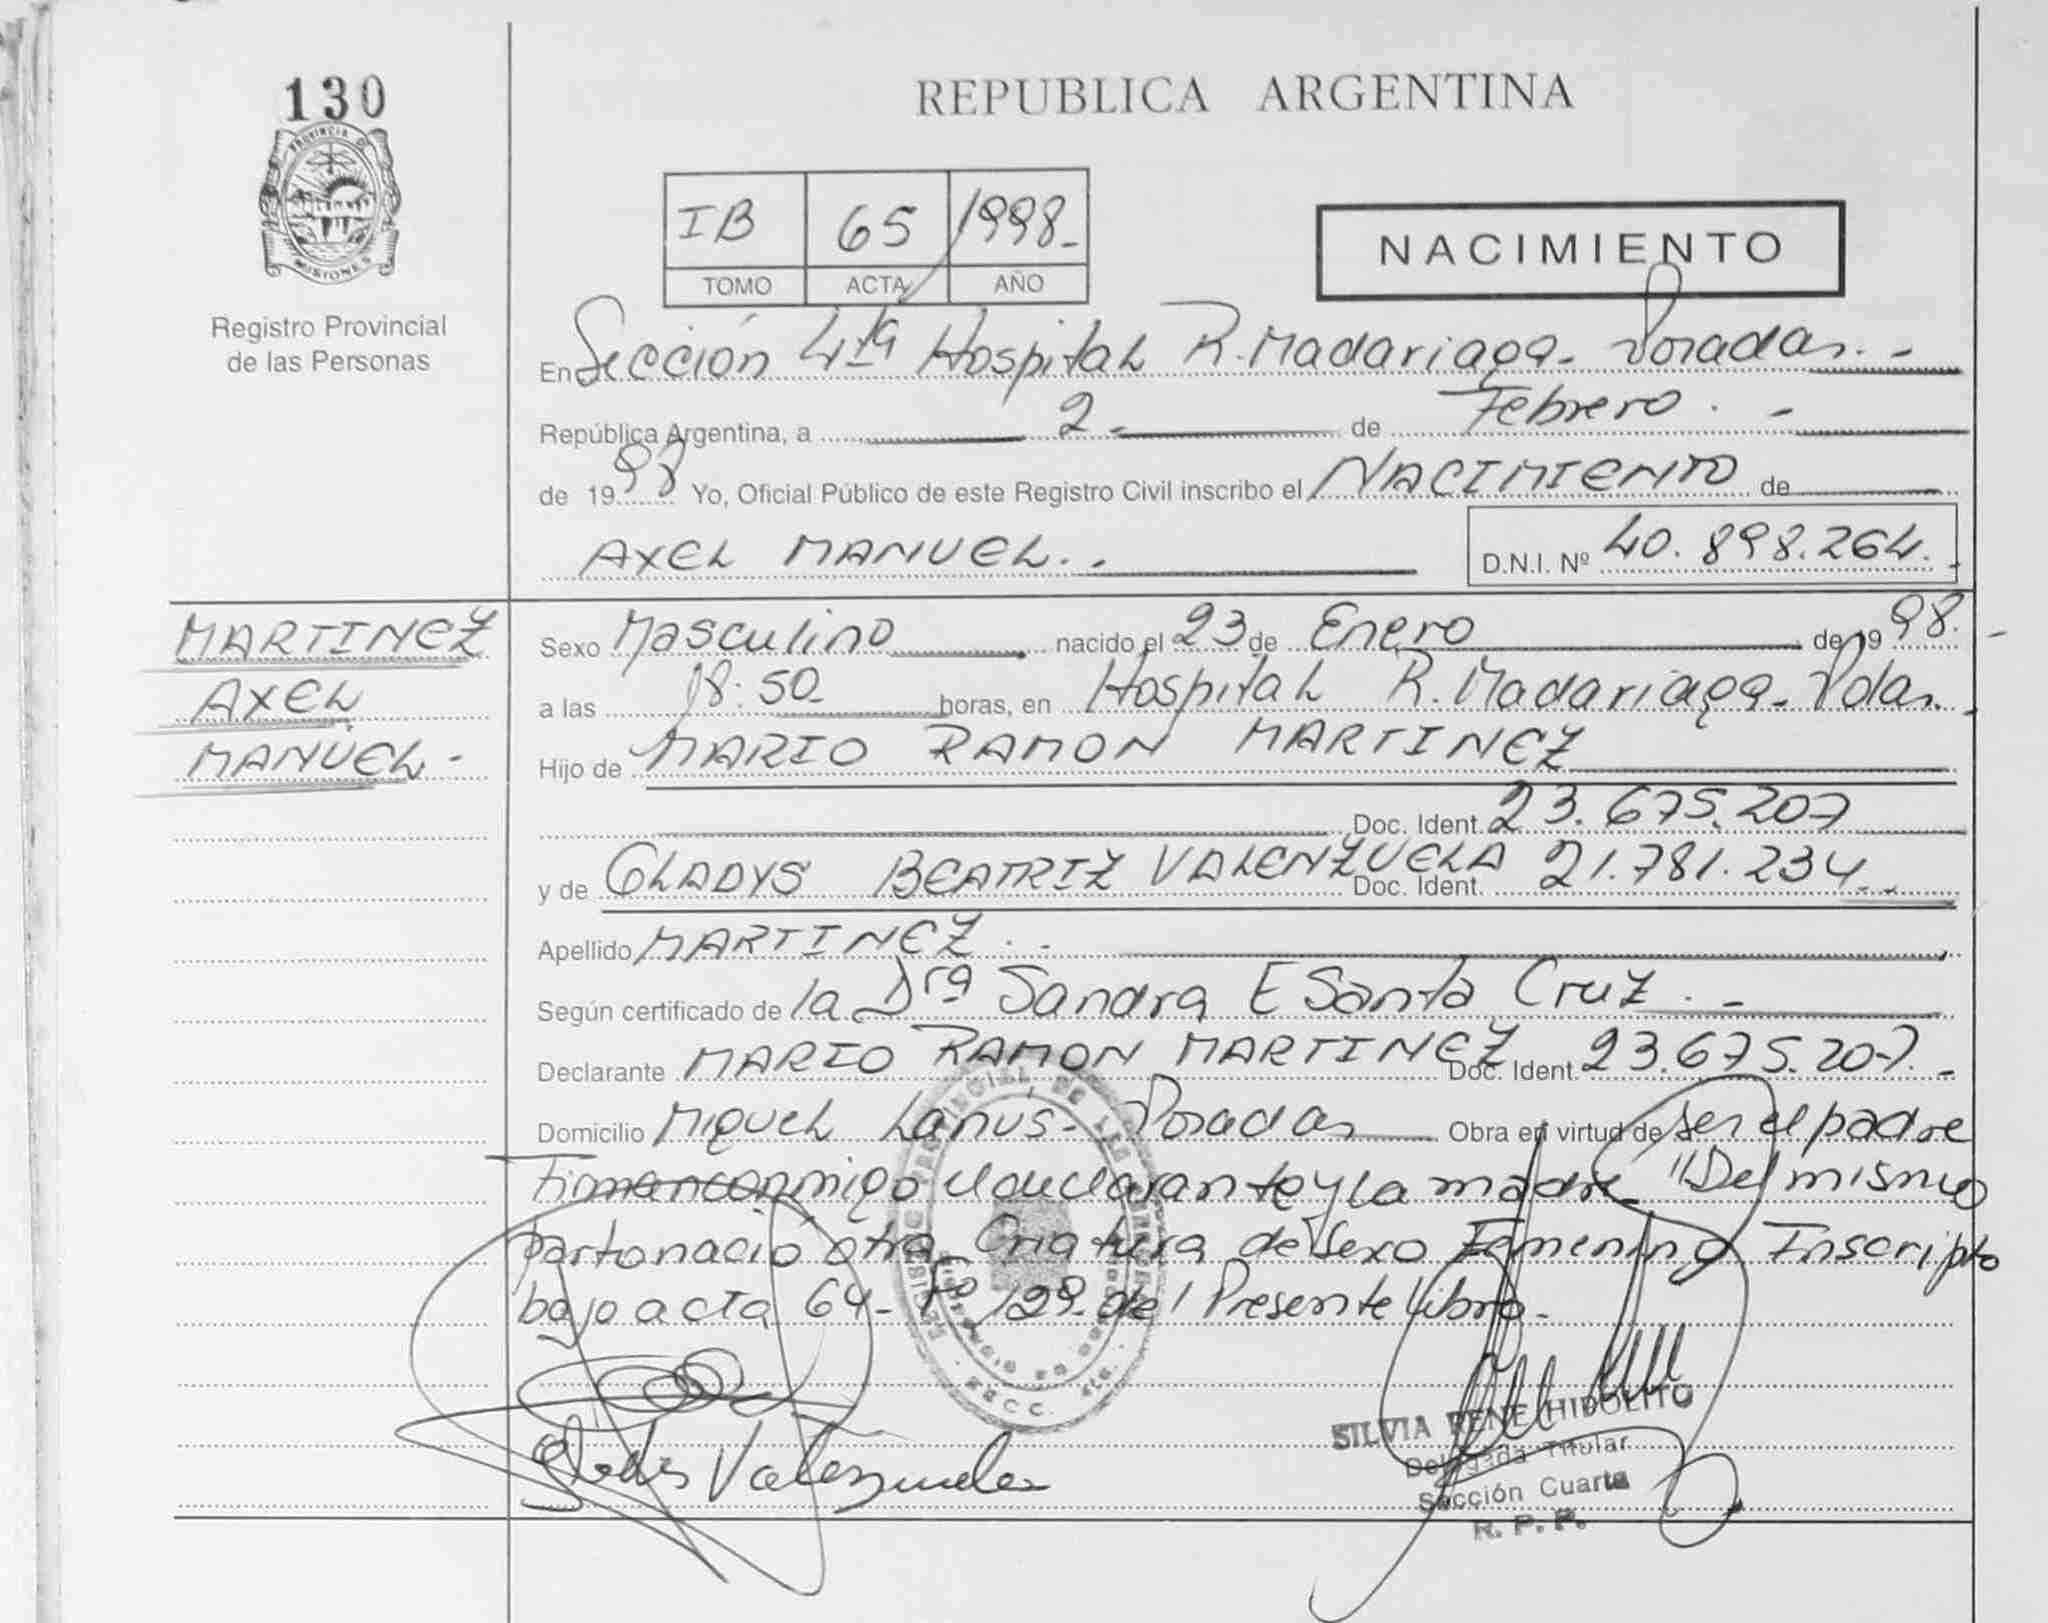 130
REPUBLICA ARGENTINA
PROVINCIA DE
MISIONES
Registro Provincial
de las Personas
IB 65 1998.-
TOMO ACTA AÑO
NACIMIENTO
En Sección 4ta Hospital R. Madariaga - Posadas. -
República Argentina, a 2.- de Febrero . -
de 1998 Yo, Oficial Público de este Registro Civil inscribo el NACIMIENTO de
AXEL MANUEL. - D.N.I. Nº 40.898.264.
MARTINEZ
AXEL
MANUEL -
Sexo Masculino nacido el 23 de Enero de 1998. -
a las 18:50 horas, en Hospital R. Madariaga - Pdas.
Hijo de MARIO RAMON MARTINEZ
Doc. Ident. 23.675.207
y de GLADYS BEATRIZ VALENZUELA Doc. Ident. 21.781.234. -
Apellido MARTINEZ . -
Según certificado de la Dra Sandra E Santa Cruz . -
Declarante MARIO RAMON MARTINEZ Doc. Ident. 23.675.207. -
Domicilio Miguel Lanús - Posadas Obra en virtud de ser el padre
Firman conmigo el declarante y la madre "Del mismo
parto nació otra Criatura de Sexo Femenino Inscripto
bajo acta 64 - Fº 129 - del Presente libro -
Gladis Valenzuela
SILVIA RENE HIPOLITO
Delegada Titular
Sección Cuarta
R. P. P.